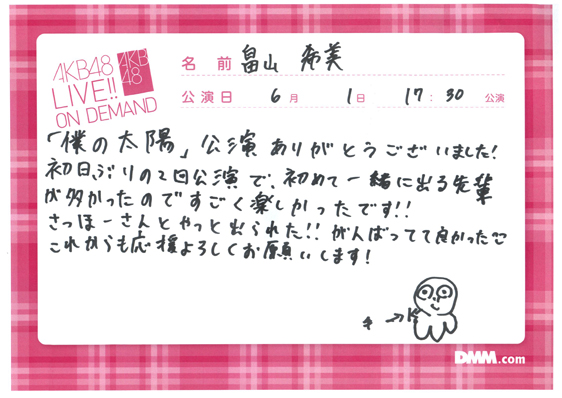 AKB48
LIVE!!
ON DEMAND
AKB
48
名 前 畠山 希美
公演日 6月 1日 17:30 公演
「僕の太陽」公演ありがとうございました!
初日ぶりの2回公演で、初めて一緒に出る先輩
が多かったのですごく楽しかったです!!
さっほーさんとやっと出られた!!がんばってて良かった
これからも応援よろしくお願いします!
DMM.com